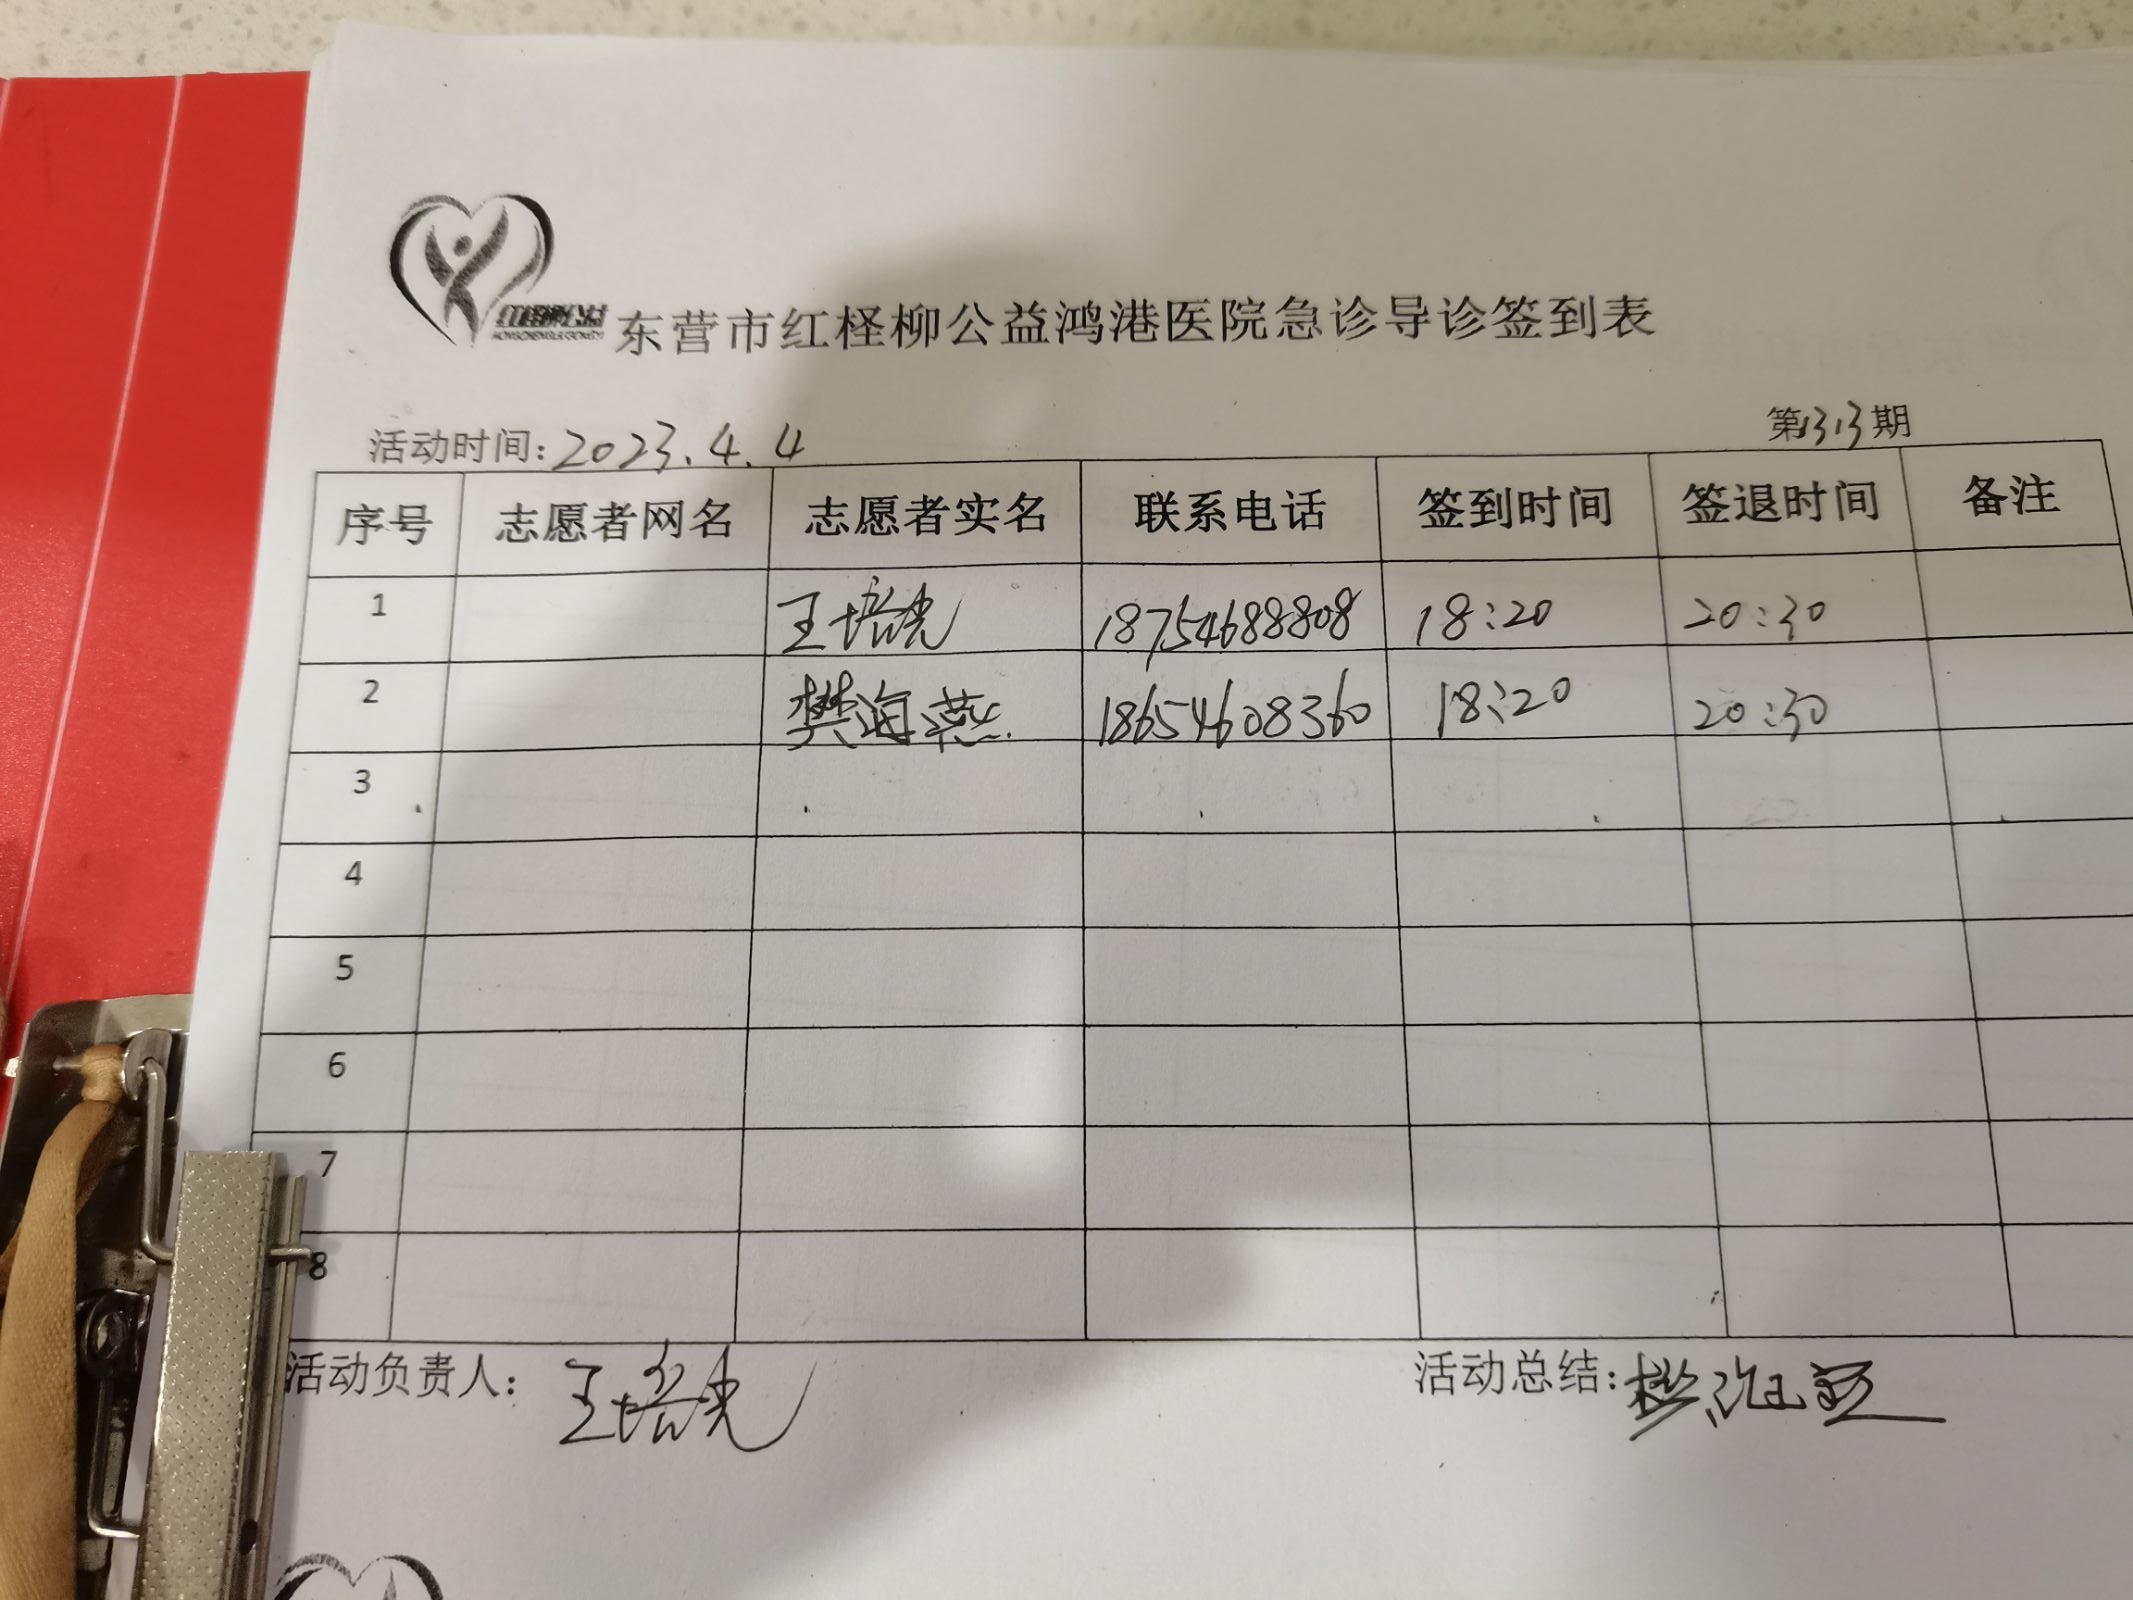 东营市红柽柳公益鸿港医院急诊导诊签到表
活动时间:2023.4.4 第1313期
序号 志愿者网名 志愿者实名 联系电话 签到时间 签退时间 备注
1 王培光 18754688808 18:20 20:30
2 樊海燕 18654608360 18:20 20:30
3
4
5
6
7
8
活动负责人: 王培光 活动总结: